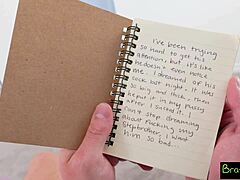 I've been trying
so hard to get his
attention, but it's like
he doesn't even notice
me. I dreamed of his
cock last night. It was
so big and thick, then
he put it in my pussy
after I sucked it. I
can't stop dreaming
about fucking my
stepbrother, I want
him so bad...
Bra